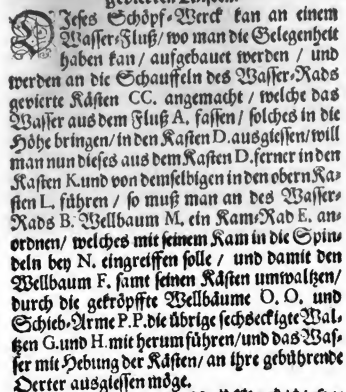 DJeses Schöpf-Werck kan an einem
Wasser-Fluß/ wo man die Gelegenheit
haben kan/ aufgebauet werden / und
werden an die Schauffeln des Wasser-Rads
gevierte Kästen CC. angemacht / welche das
Wasser aus dem Fluß A. fassen / solches in die
Höhe bringen/ in den Kasten D. ausgiessen/ will
man nun dieses aus dem Kasten D. ferner in den
Kasten K. und von demselbigen in den obern Ka-
sten L. führen / so muß man an des Wasser-
Rads B. Wellbaum M. ein Kam-Rad E. an-
ordnen/ welches mit seinem Kam in die Spin-
deln bey N. eingreiffen solle / und damit den
Wellbaum F. samt seinen Kästen umwaltzen/
durch die gekröpffte Wellbäume O. O. und
Schieb-Arme P. P. die übrige sechseckigte Wal-
tzen G. und H. mit herum führen/ und das Was-
ser mit Hebung der Kästen/ an ihre gebührende
Oerter ausgiessen möge.